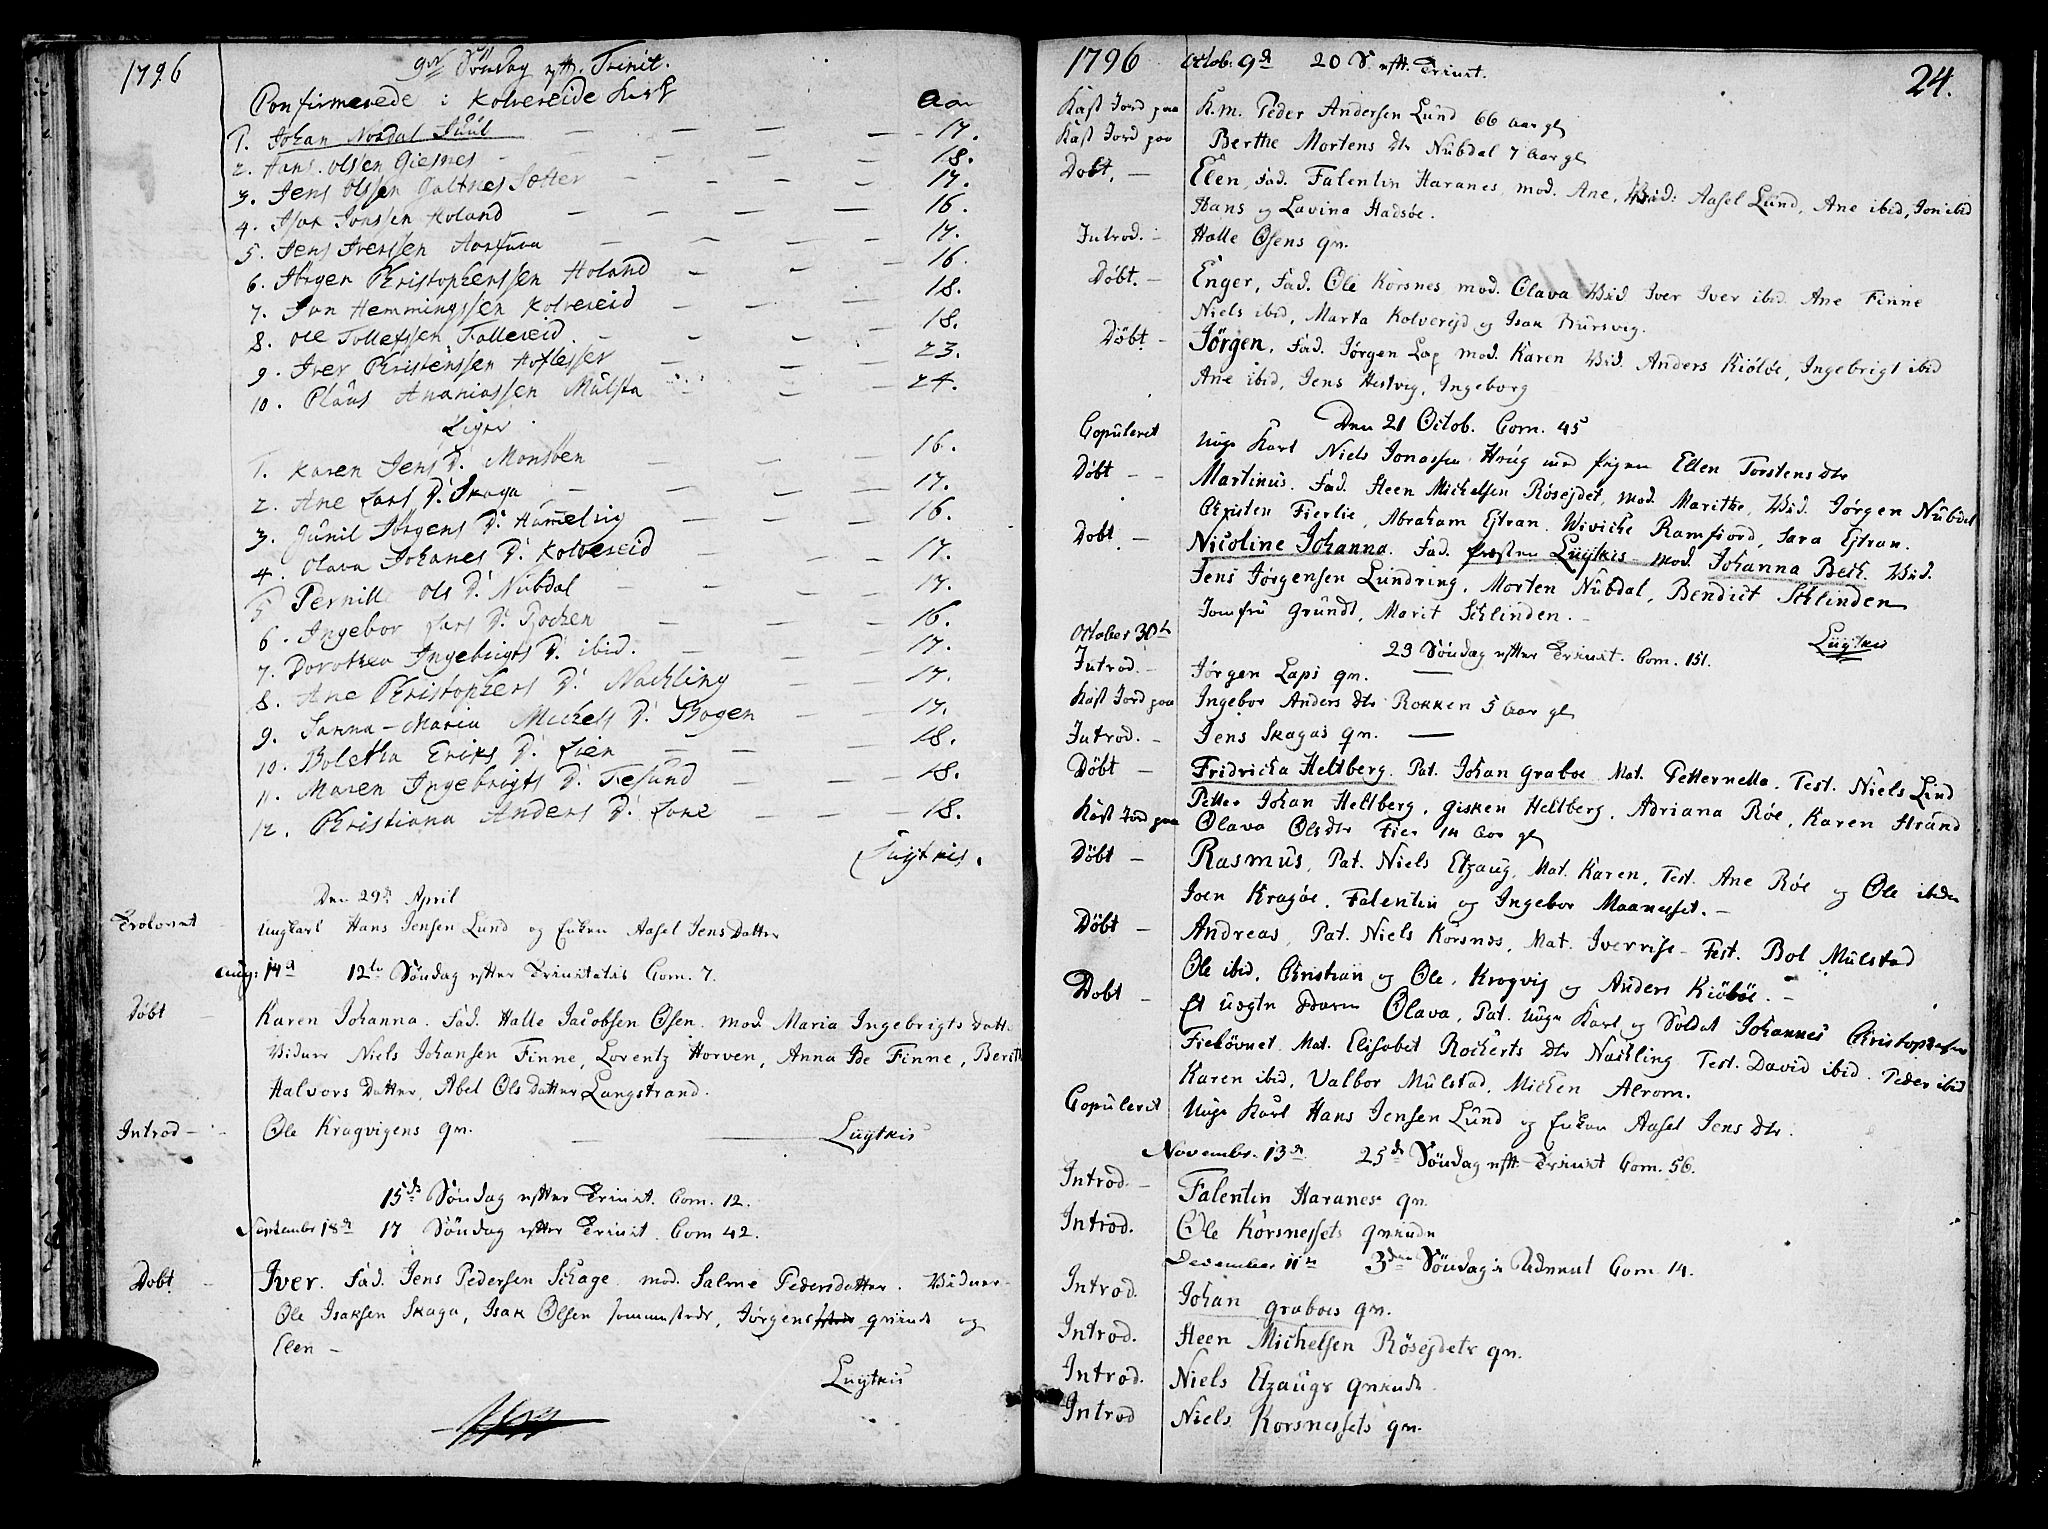 1796
9de Söndag eftr. Trinit.
Confirmerede i Kolvereide Kirk
Aar
1. Johan Nordal Juul — 17.
2. Hans Olssen Giesnes — 18.
3. Jens Olssen Galtnes Sætter — 17.
4. Isak Jonssen Holand — 16.
5. Jens Iverssen Aarfura — 17.
6. Jörgen Christophersen Holand — 16.
7. Jon Hemmingssen Kolvereid — 18.
8. Ole Tollefssen Follereid — 18.
9. Iver Christenssen Hoflesser — 23.
10. Claus Ananiassen Mulsta — 24.
Piger
1. Karen Jens D. Monsöen — 16.
2. Ane Lars D. Skaga — 17.
3. Gunil Jörgens D. Hameling — 16.
4. Olava Johanes D. Kolvereid — 17.
5 Pernille Ols D. Nubdal — 17.
6. Ingebor Lars D. Rocken — 16.
7. Dorothea Ingebrigts D. ibid. — 17.
8. Ane Christophers D. Nachling — 17.
9. Sanna-Maria Michels D. Bogen — 17.
10. Boletha Eriks D. Lien — 18.
11. Maren Ingebrigts D. Fesund — 18.
12. Christiana Anders D. Lone — 18.
Luytkis.
Den 29de April
Trolovet Ungkarl Hans Jensen Lund og Enken Aasel Jens Datter
Aug: 14d 12te Söndag efter Trinitatis Com. 7.
Döbt Karen Johanna. Fad. Halle Jacobsen Osen. mod. Maria Ingebrigts Datt.
Viduer Niels Johansen Finne, Lorentz Horven, Anna Ide Finne, Berith
Halvors Datter, Abel Ols Datter Langstrand.
Introd — Ole Kragvigens qv. — Luytkis
15de Söndag efter Trinit. Com. 12.
September 18de 17 Söndag efter Trinit. Com 42.
Dobt. Iver. Fad. Jens Pedersen Schage. mod. Salme Pedersdatter. Viduer
Ole Isaksen Skaga, Isak Olsen Sommersæde, Jørgens qvinde og
Elen —
Luytkis
1796 Octob. 9d 20 S. eftr. Trinit. 24.
Kast Jord paa K.m. Peder Andersen Lund 66 Aar gl
Kast Jord paa Berthe Mortens Dtr Nubdal 7 Aar gl
Dobt. — Elen, Fad. Falentin Haranes, mod. Ane, Vid: Aasel Lund, Ane ibid, Jon ibid
Hans og Lavina Hadsöe.
Introd. — Halle Osens qv.
Döbt. — Enger, Fad. Ole Korsnes mod. Olava Vid Iver Iver ibid. Ane Finne
Niels ibid, Marta Kolverejd og Isak Bursvig.
Döbt. — Jörgen, Fad. Jörgen Lap mod. Karen Vid. Anders Kiölöe, Ingebrigt ibid
Ane ibid, Jens Hestvig, Ingeborg
Den 21 Octob. Com. 45
Copuleret Unge Karl Niels Jonassen Krug med Pigen Ellen Torstens dtr
Döbt — Martinus. Fad. Steen Michelsen Rösejdet, mod. Marithe, Vid. Jörgen Nubdal
Christen Fierlie, Abraham Ejtran. Wiviche Ramfiord, Sara Ejtran.
Dobt — Nicoline Johanna. Fad. Præsten Luytkis mod. Johanna Bech. Vid.
Jens Jørgensen Lundring, Morten Nubdal, Bendict Schlinden
Jomfru Grundt, Marit Schlinden. — Luytkis
October 30te 23 Söndag efter Trinit. Com. 151.
Introd. — Jørgen Laps qv. —
Kast Jord paa Ingebor Anders Dtr Rokken 5 Aar gl
Introd. — Jens Skagas qv. —
Döbt — Fridricka Heltberg. Pat. Johan Graboe Mat. Petternella. Test. Niels Lind
Petter Johan Heltberg, Gisken Heltberg, Adriana Röe, Karen Strand
Kast Jord paa Olava Olsdtr Fier 14 Aar gl
Döbt — Rasmus, Pat. Niels Etzaug, Mat. Karen, Test. Ane Röe og Ole ibidem
Joen Kragöe, Falentin og Ingebor Maaneset. —
Döbt — Andreas, Pat. Niels Korsnes, Mat. Iverrise — Test. Bol Mulstad
Ole ibid, Christian og Ole, Kragvig og Anders Kiöböe. —
Dobt — Et uægte Barn Olava, Pat. Unge Karl og Soldat Johannes Christophersen
Fiekövnet. Mat. Elisabet Rockerts Dtr Nachling. Test. David ibid. Peder ibid
Karen ibid, Valbor Mulstad, Micken Alrom.
Copuleret Unge Karl Hans Jensen Lund og Enken Aasel Jens Dtr.
Novembr. 13de 25de Söndag eftr. Trinit Com. 56.
Introd. — Falentin Haranes qv.
Introd. Ole Korsnessets qvinde
December 11te 3die Söndag i Advent Com. 14.
Introd. Johan Graboes qv.
Introd. Steen Michelsen Rösejdets qv.
Introd. Niels Etzaugs qvinde.
Introd Niels Korsnessets qv.